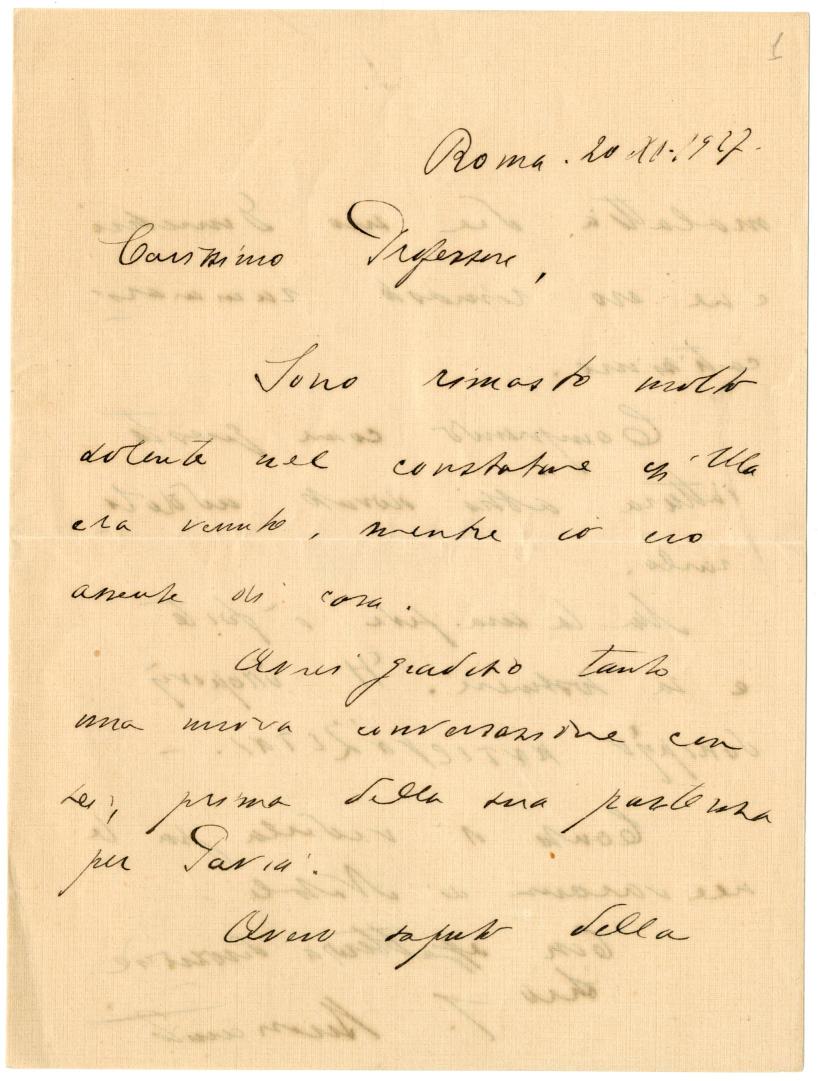 1
Roma. 20 XI. 1927.
Carissimo Professore,
Sono rimasto molto
dolente nel constatare ch'Ella
era venuto, mentre io ero
assente di casa.
Avrei gradito tanto
una nuova conversazione con
Lei, prima della sua partenza
per Pavia.
Avevo saputo della